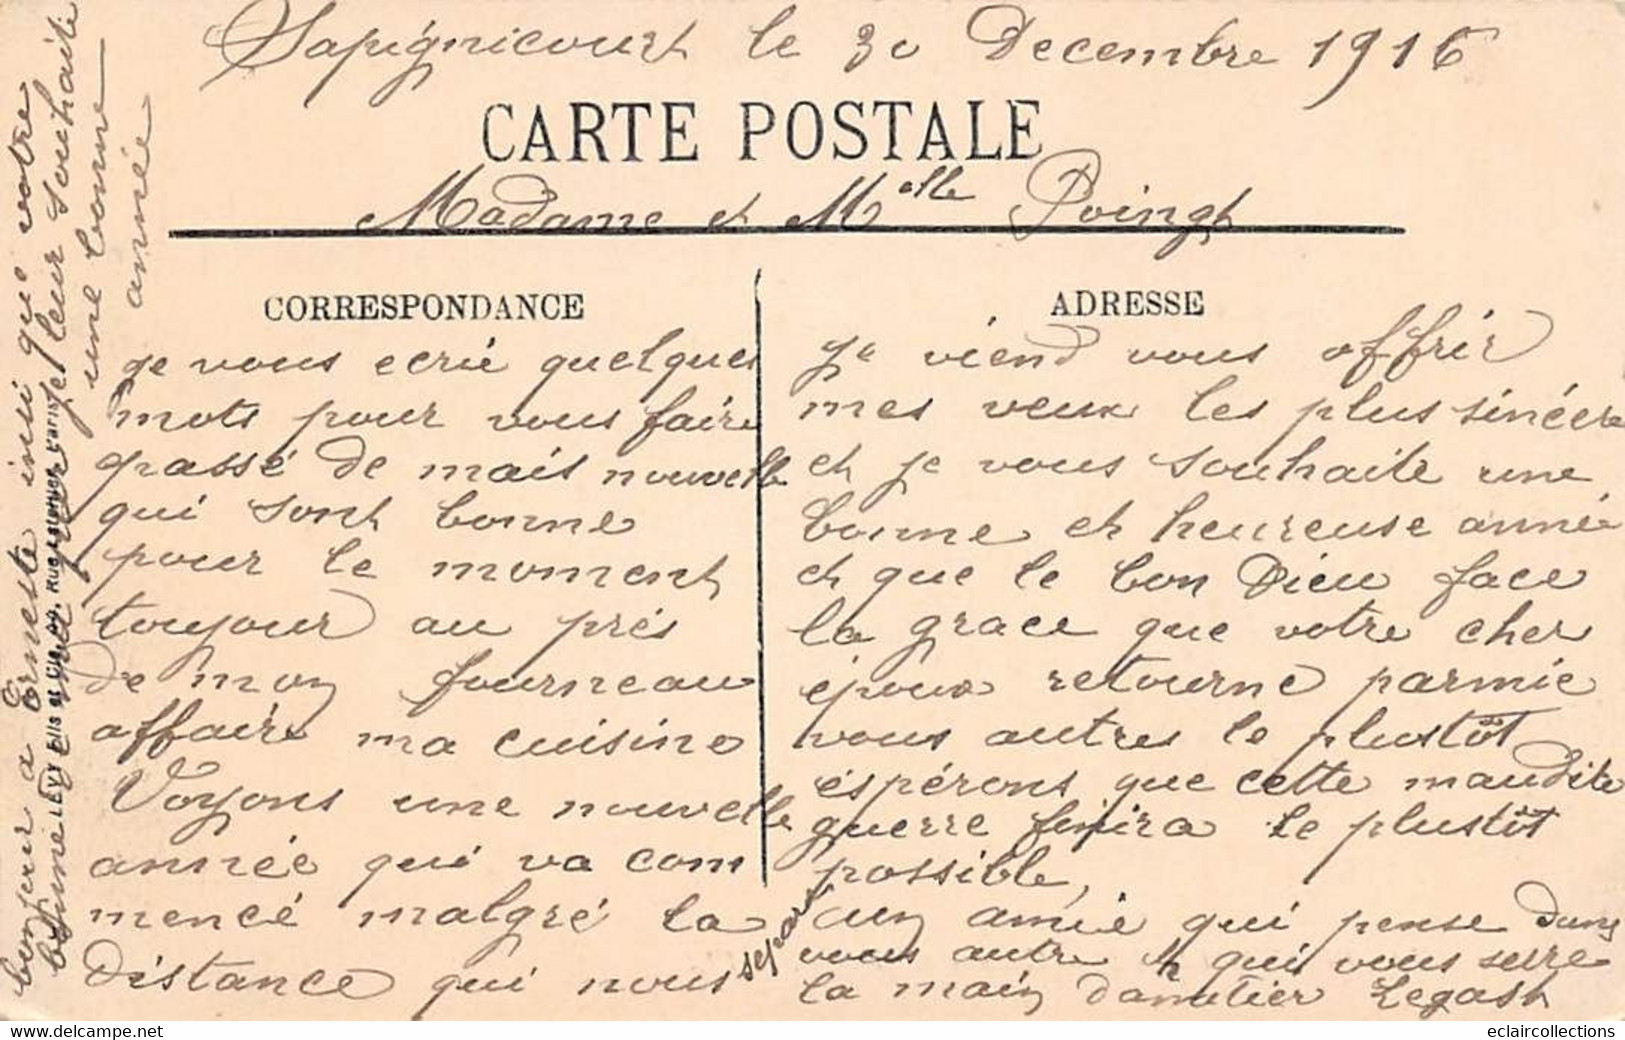 Sapignicourt le 30 Decembre 1916
CARTE POSTALE
Madame et Melle Poingt
CORRESPONDANCE
je vous ecrie quelques
mots pour vous faire
passé de mais nouvelle
qui sont bonne
pour le moment
toujour au prés
de mon fourneau
affaire ma cuisine
Voyons une nouvelle
année qui va com
mencé malgré la
distance qui nous separe
ADRESSE
je viend vous offrir
mes veux les plus sincère
et je vous souhaite une
bonne et heureuse année
et que le bon Dieu face
la grace que votre cher
époux retourne parmie
vous autres le plustôt
éspérons que cette maudite
guerre finira le plustôt
possible,
un amié qui pense dans
vous autre qui vous serre
la main Legast
bonjour a Erneste insi que votre
bonne mer et leur souhaite
une bonne
année
LEVY Fils et Cie,
eclaircollections